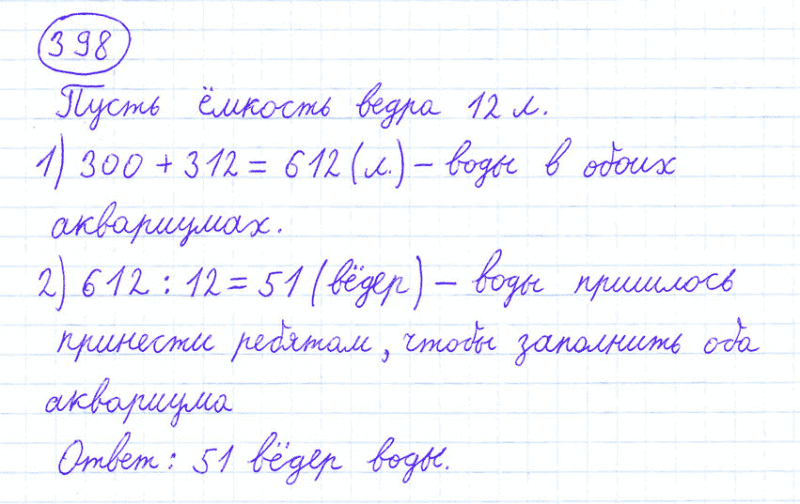 398
Пусть ёмкость ведра 12 л.
1) 300 + 312 = 612 (л.) – воды в обоих
аквариумах.
2) 612 : 12 = 51 (вёдер) – воды пришлось
принести ребятам, чтобы заполнить оба
аквариума
Ответ: 51 вёдер воды.